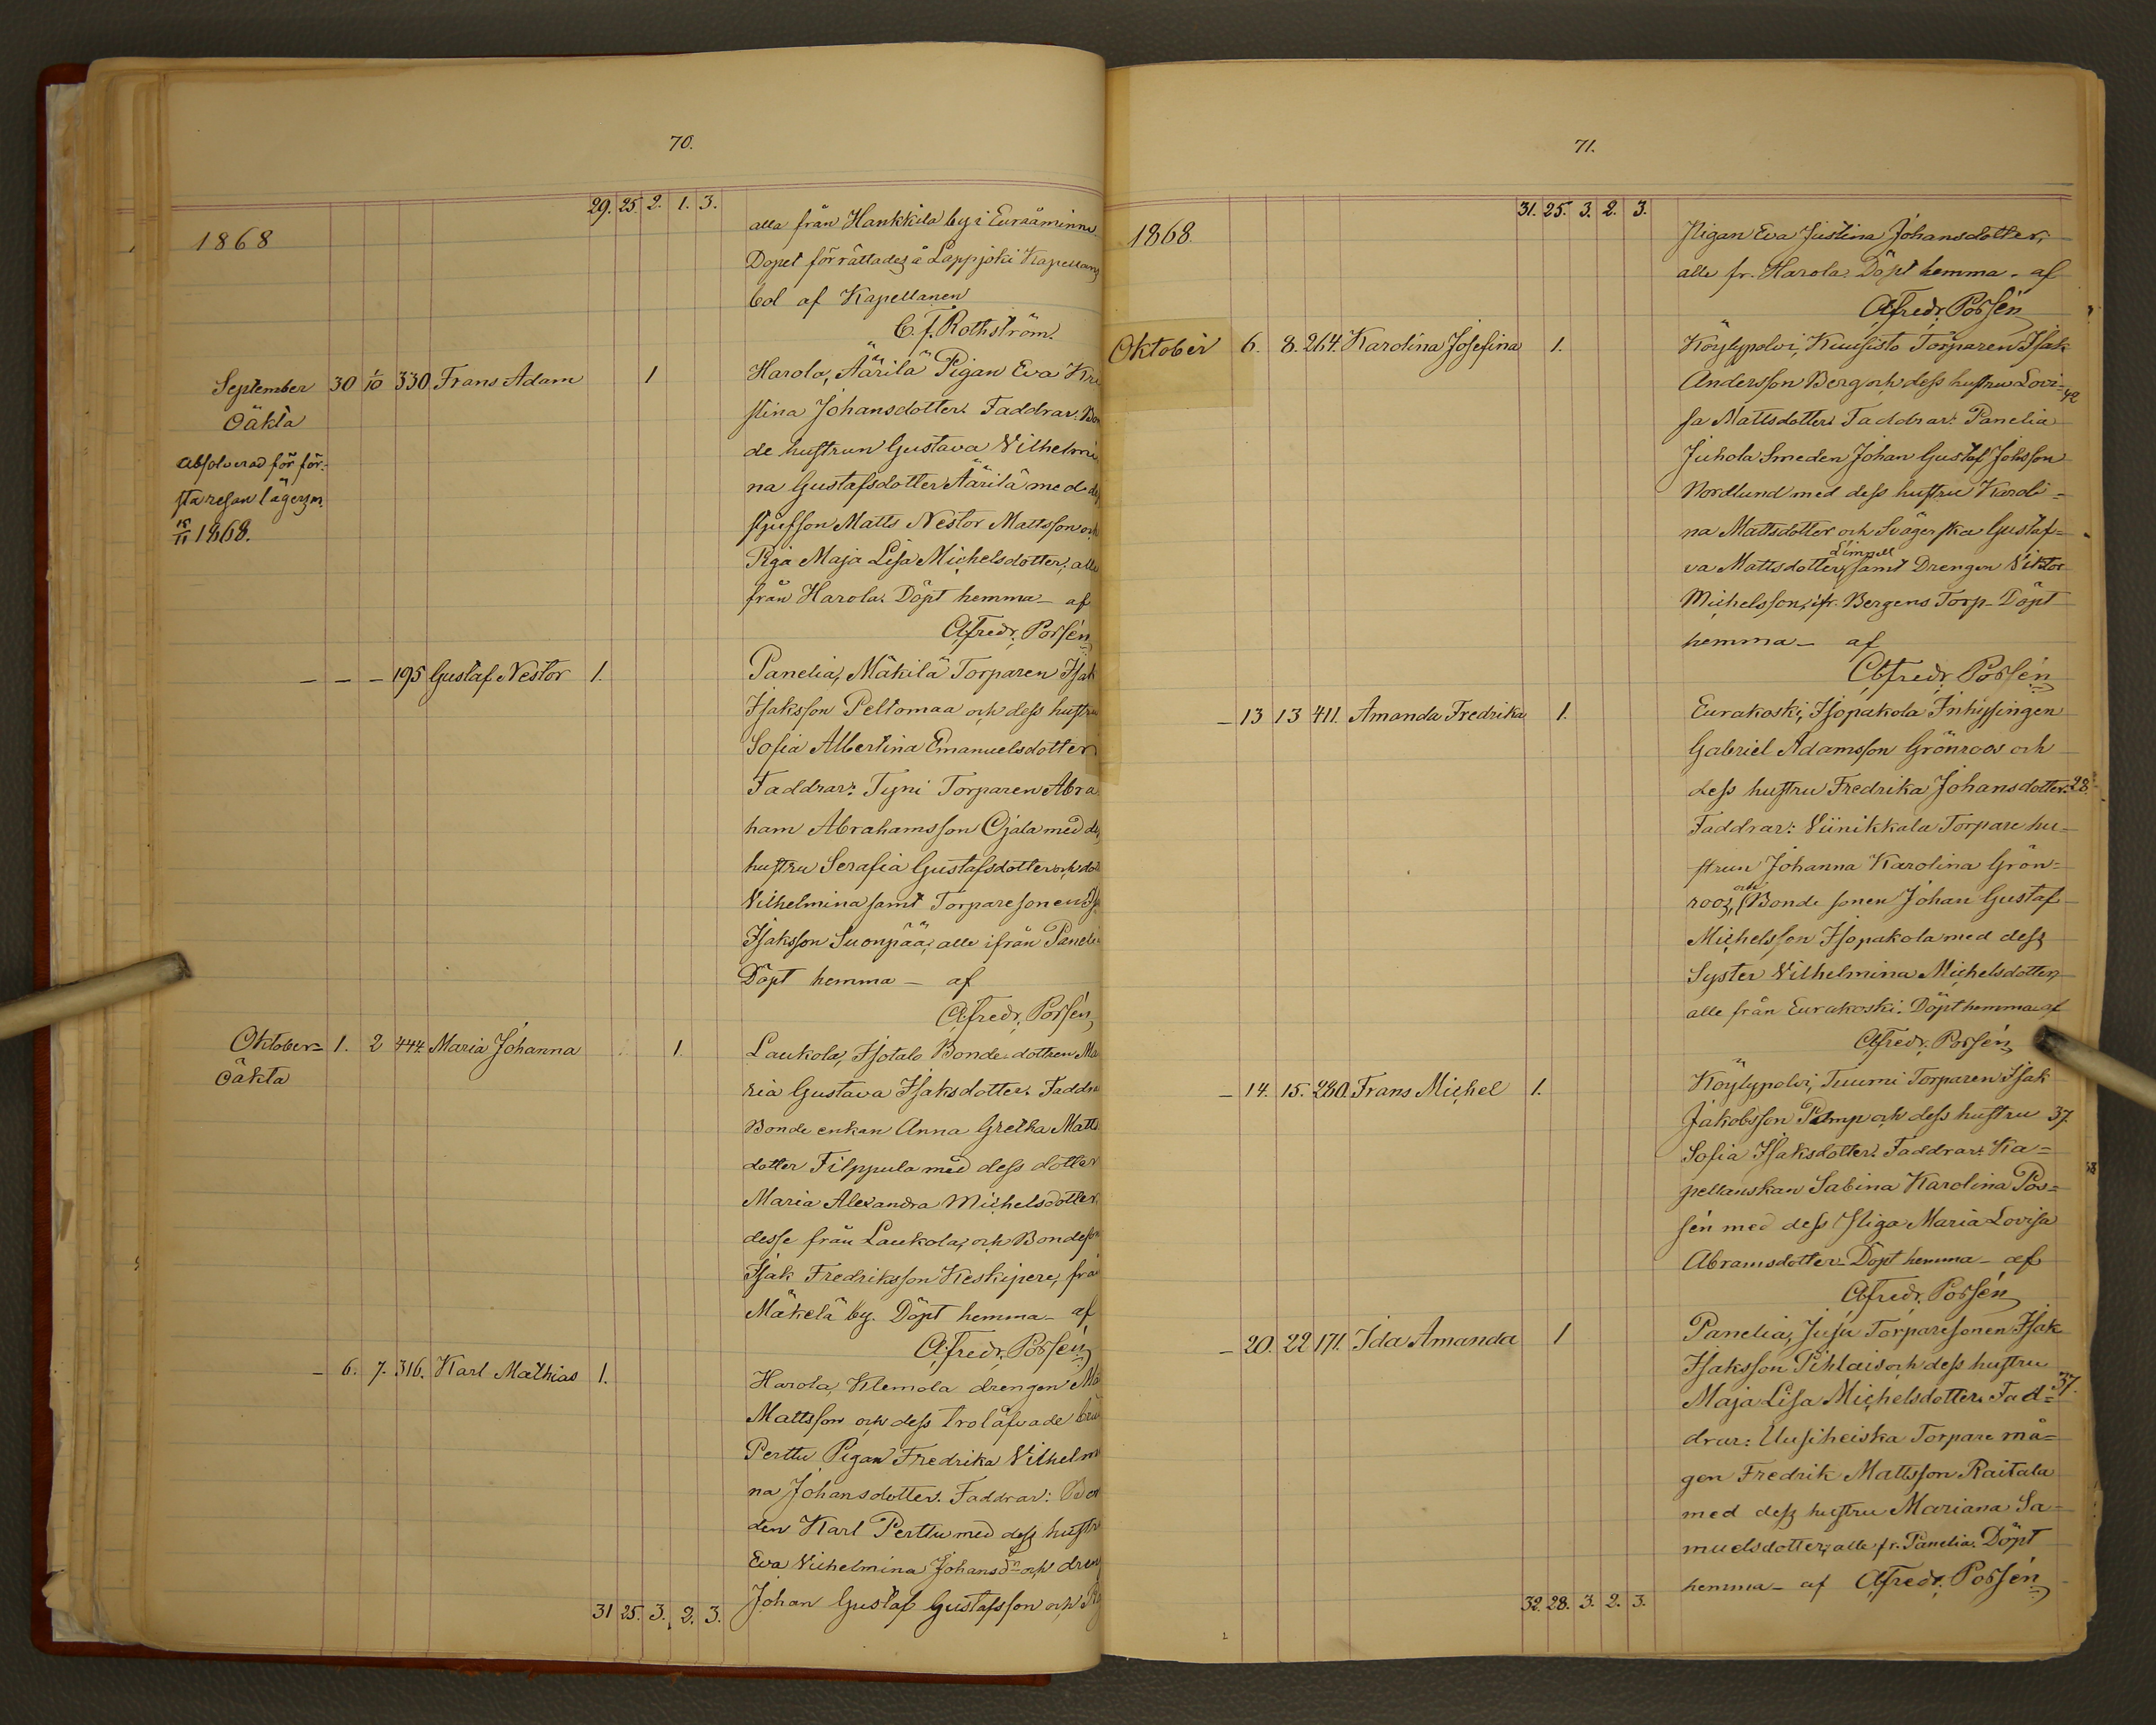 70.
29. 25. 2. 1. 3.
1868
alla från Hankkila by i Euraåminne.
Dopet förrättades å Lappjoki Kapellans
bol af Kapellanen
C. f. Rothström.
September 30 1/10 330. Frans Adam 1 Harola, Äärilä Pigan Eva Kri
Oäkta
stina Johansdotter. Faddrar: Bon
Absolverad för för-
de hustrun Gustava Vilhelmi
sta resan lägersm.
na Gustafsdotter Äärilä med
15/11 1868.
styfsson Matts Nestor Mattsson och
Piga Maja Lisa Michelsdotter, alla
från Harola. Döpt hemma – af
A. Fredr. Porsén
– – – 195 Gustaf Nestor 1. Panelia, Mäkilä Torparen Isak
Isaksson Peltomaa och dess hustru
Sofia Albertina Emanuelsdotter
Faddrar: Tyni Torparen Abra
ham Abrahamsson Ojala med
hustru Serafia Gustafsdotter och
Vilhelmina samt Torparesonen
Isaksson Suonpää, alle ifrån Paneli
Döpt hemma – af
A. Fredr. Porsén
Oktober= 1. 2 444. Maria Johanna 1. Laukola, Isotalo Bonde dottren Ma
oäkta
ria Gustava Isaksdotter. Faddra
Bonde enkan Anna Gretha Matts
dotter Filppula med dess dotter
Maria Alexandra Michelsdotter,
desse från Laukola, och Bondeson
Isak Fredriksson Keskipere, frå
Mäkelä by. Döpt hemma – af
A. Fredr. Porsén
– 6. 7. 316. Karl Mathias 1. Harola, Klemola drengen
Mattsson och dess trolåfvade brud
Perttu Pigan Fredrika Vilhelmi
na Johansdotter. Faddrar: Bon
den Karl Perttu med dess hustr
Eva Vilhelmina Johansdr och dreng
Johan Gustaf Gustafsson och
31 25. 3. 2. 3.
71.
31. 25. 3. 2. 3.
1868.
Pigan Eva Justina Johansdotter,
alle fr. Harola. Döpt hemma – af
A. Fredr. Porsén
Oktober 6. 8. 264. Karolina Josefina 1. Köylypolvi, Kuusisto Torparen Isak
Andersson Berg och dess hustru Lovi= 42
sa Mattsdotter Faddrar: Panelia
Juhola Smeden Johan Gustaf Johsson
Nordlund med dess hustru Karoli=
na Mattsdotter och Svägerska Gustaf=
va Mattsdotter Limnell samt Drengen Viktor
Michelsson, ifr. Bergens Torp. Döpt
hemma – af
A. Fredr. Porsén
– 13 13 411. Amanda Fredrika 1. Eurakoski, Isopakola Inhysingen
Gabriel Adamsson Grönroos och
dess hustru Fredrika Johansdotter. 28.
Faddrar: Viinikkala Torpare hu=
strun Johanna Karolina Grön=
roos, och Bonde sonen Johan Gustaf
Michelsson Isopakola med dess
Syster Vilhelmina Michelsdotter,
alle från Eurakoski. Döpt hemma af
A. Fredr. Porsén
– 14. 15. 280. Frans Michel 1. Köylypolvi, Tuumi Torparen Isak
Jakobsson Pamp och dess hustru 37.
Sofia Isaksdotter. Faddrar: Ka=
pellanskan Sabina Karolina Por=
sén med dess Piga Maria Lovisa
Abramsdotter. Döpt hemma – af
A. Fredr. Porsén
– 20. 22 171. Ida Amanda 1 Panelia, Juju Torparesonen Isak
Isaksson Pihlais och dess hustru
Maja Lisa Michelsdotter. Fad= 37.
drar: Uusiheiska Torpare må=
gen Fredrik Mattsson Raitala
med dess hustru Mariana Sa=
muelsdotter, alle fr. Panelia. Döpt
hemma – af A. Fredr. Porsén
32. 28. 3. 2. 3.